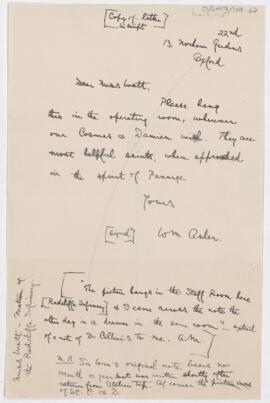 CUS417/119.62
[Copy of letter
in script]
22nd
13, Norham Gardens
Oxford
Dear Miss Watt,
Please hang
this in the operating room, wherever
our Cosmas & Damien. They are
most helpful saints, when approached
in the spirit of Panurge
Yours
[signed] Wm Osler.
["The picture hangs in the Staff Room here
[Radcliffe Infirmary] & I came across the note the
other day in a drawer in the same room" - extract
of a note of Dr Collier's to me. A.M.]
N.B. Sir Wm's original note bears no
month or year but was written shortly after
return from Italian trip. Of course the picture was
of St. C. & D.
Miss Watt - Matron of
the Radcliffe Infirmary.